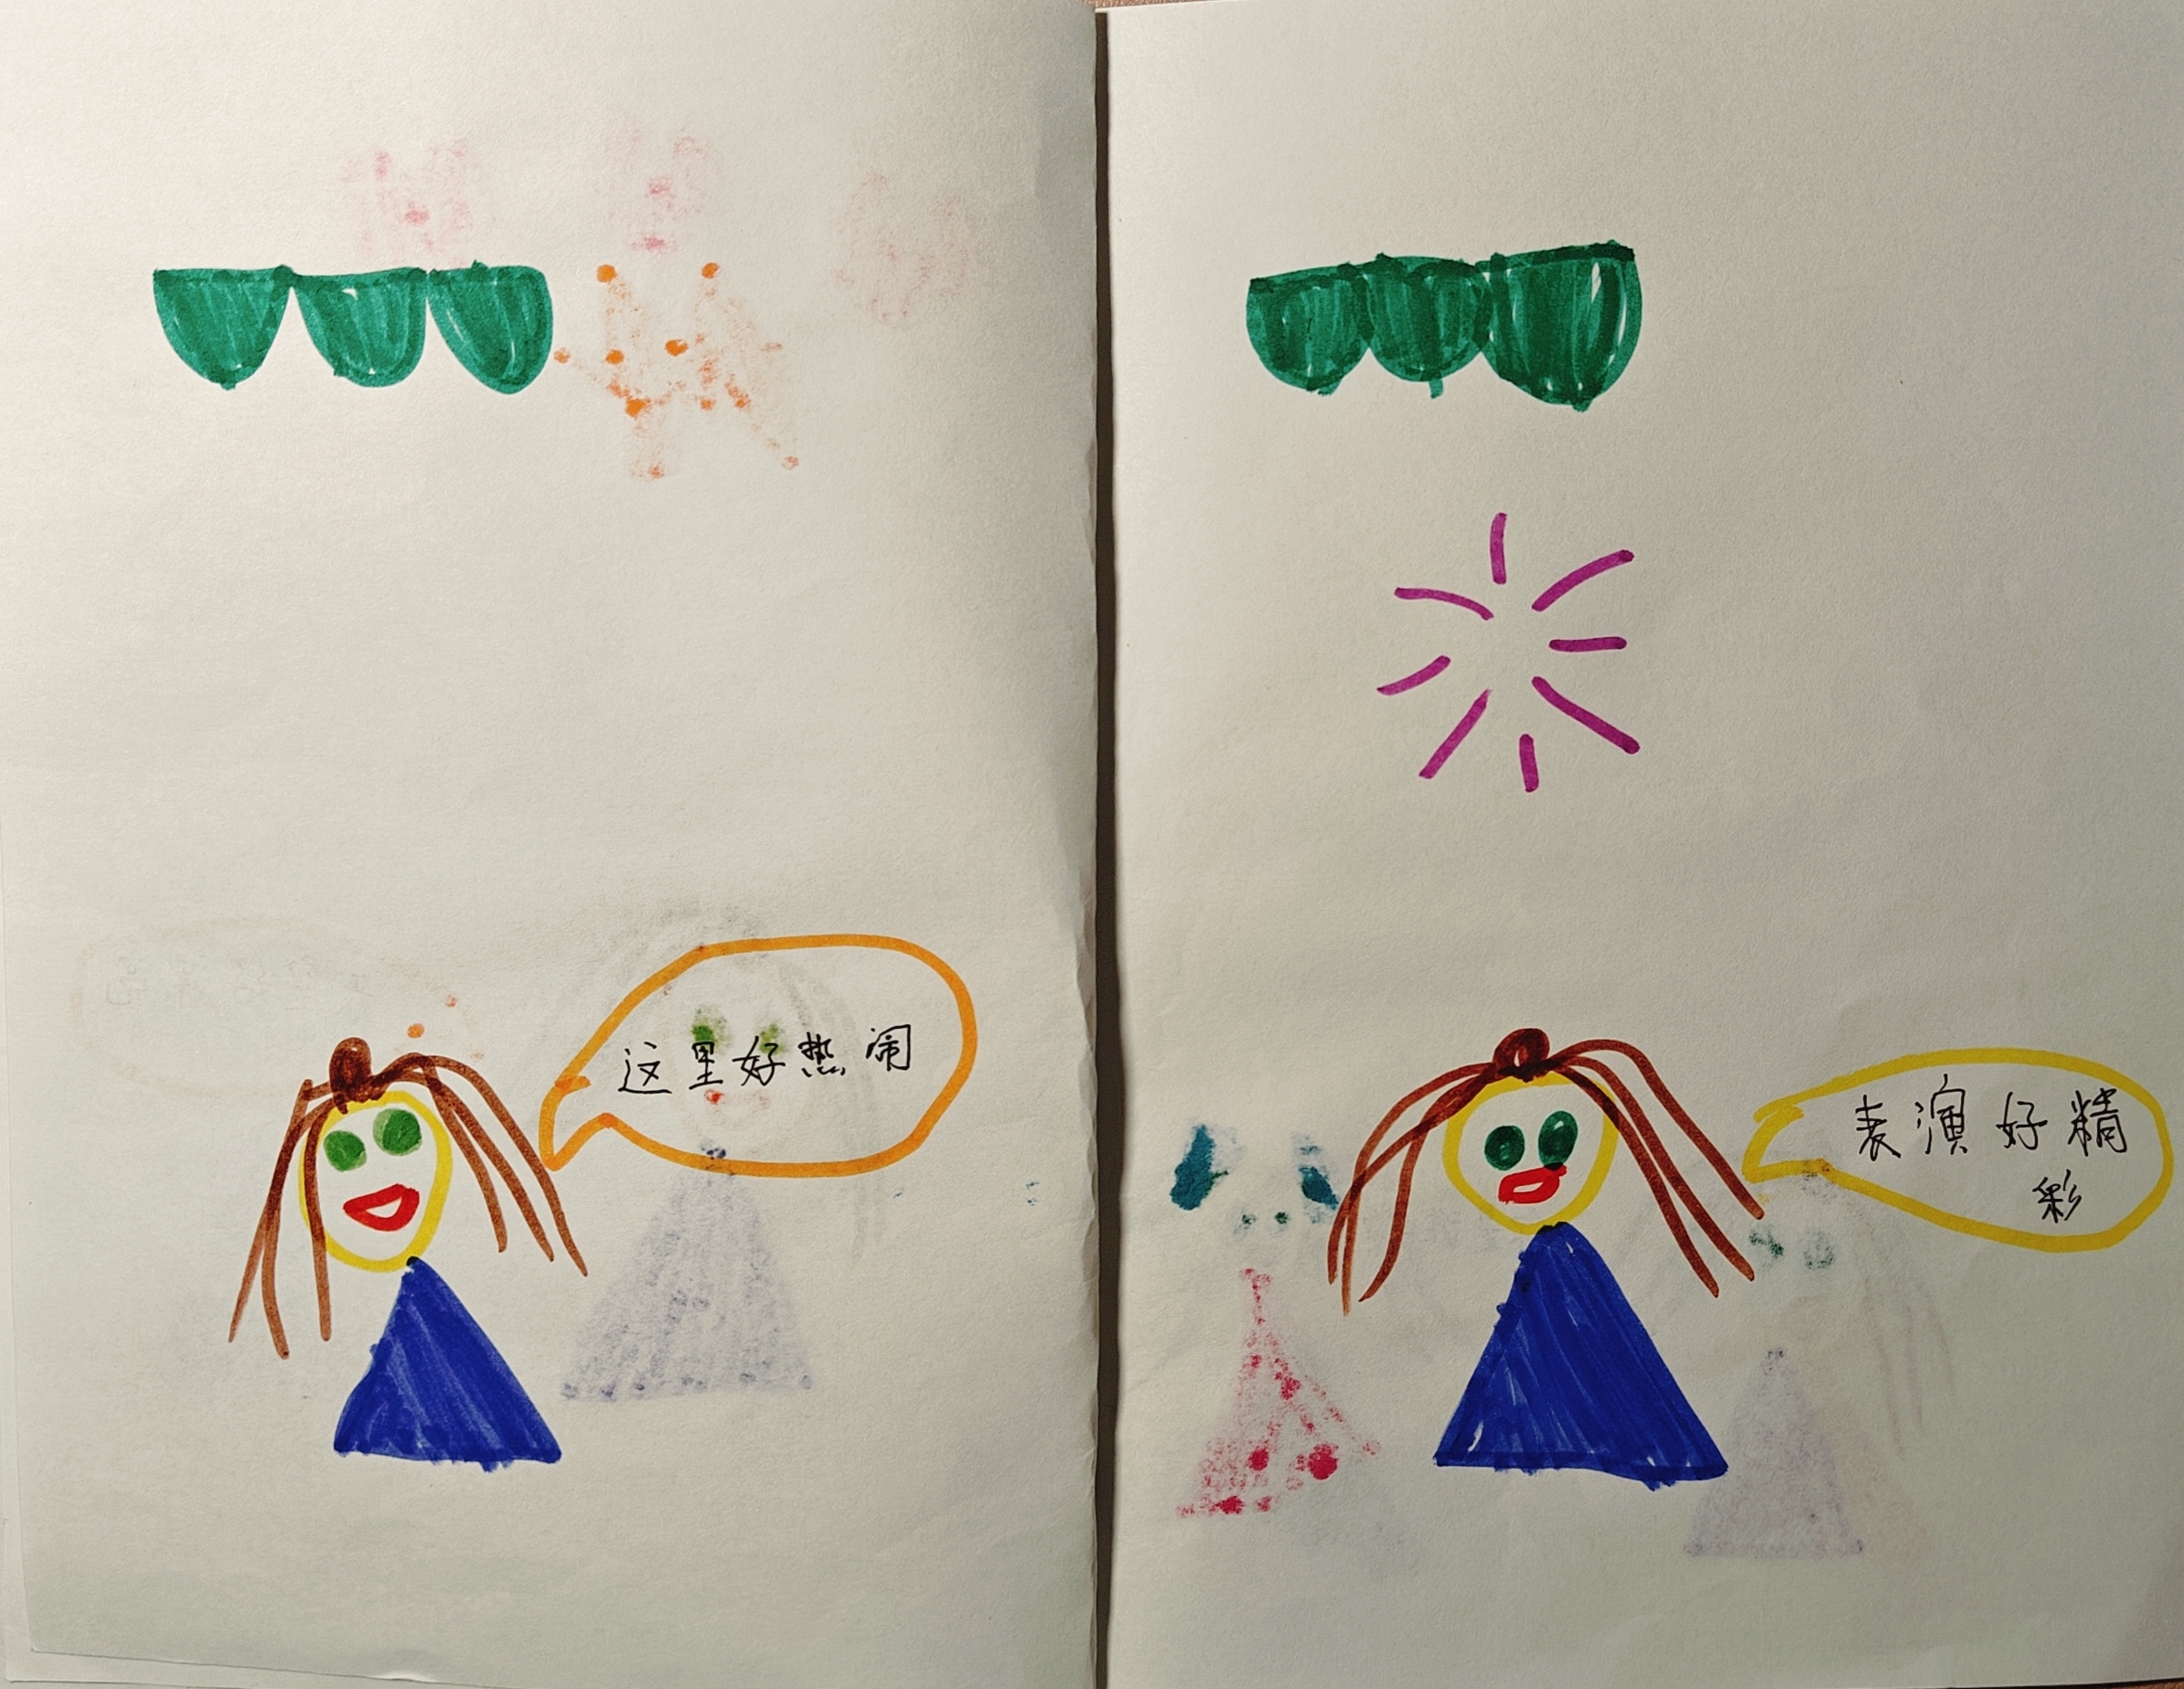 这里好热闹
表演好精
彩